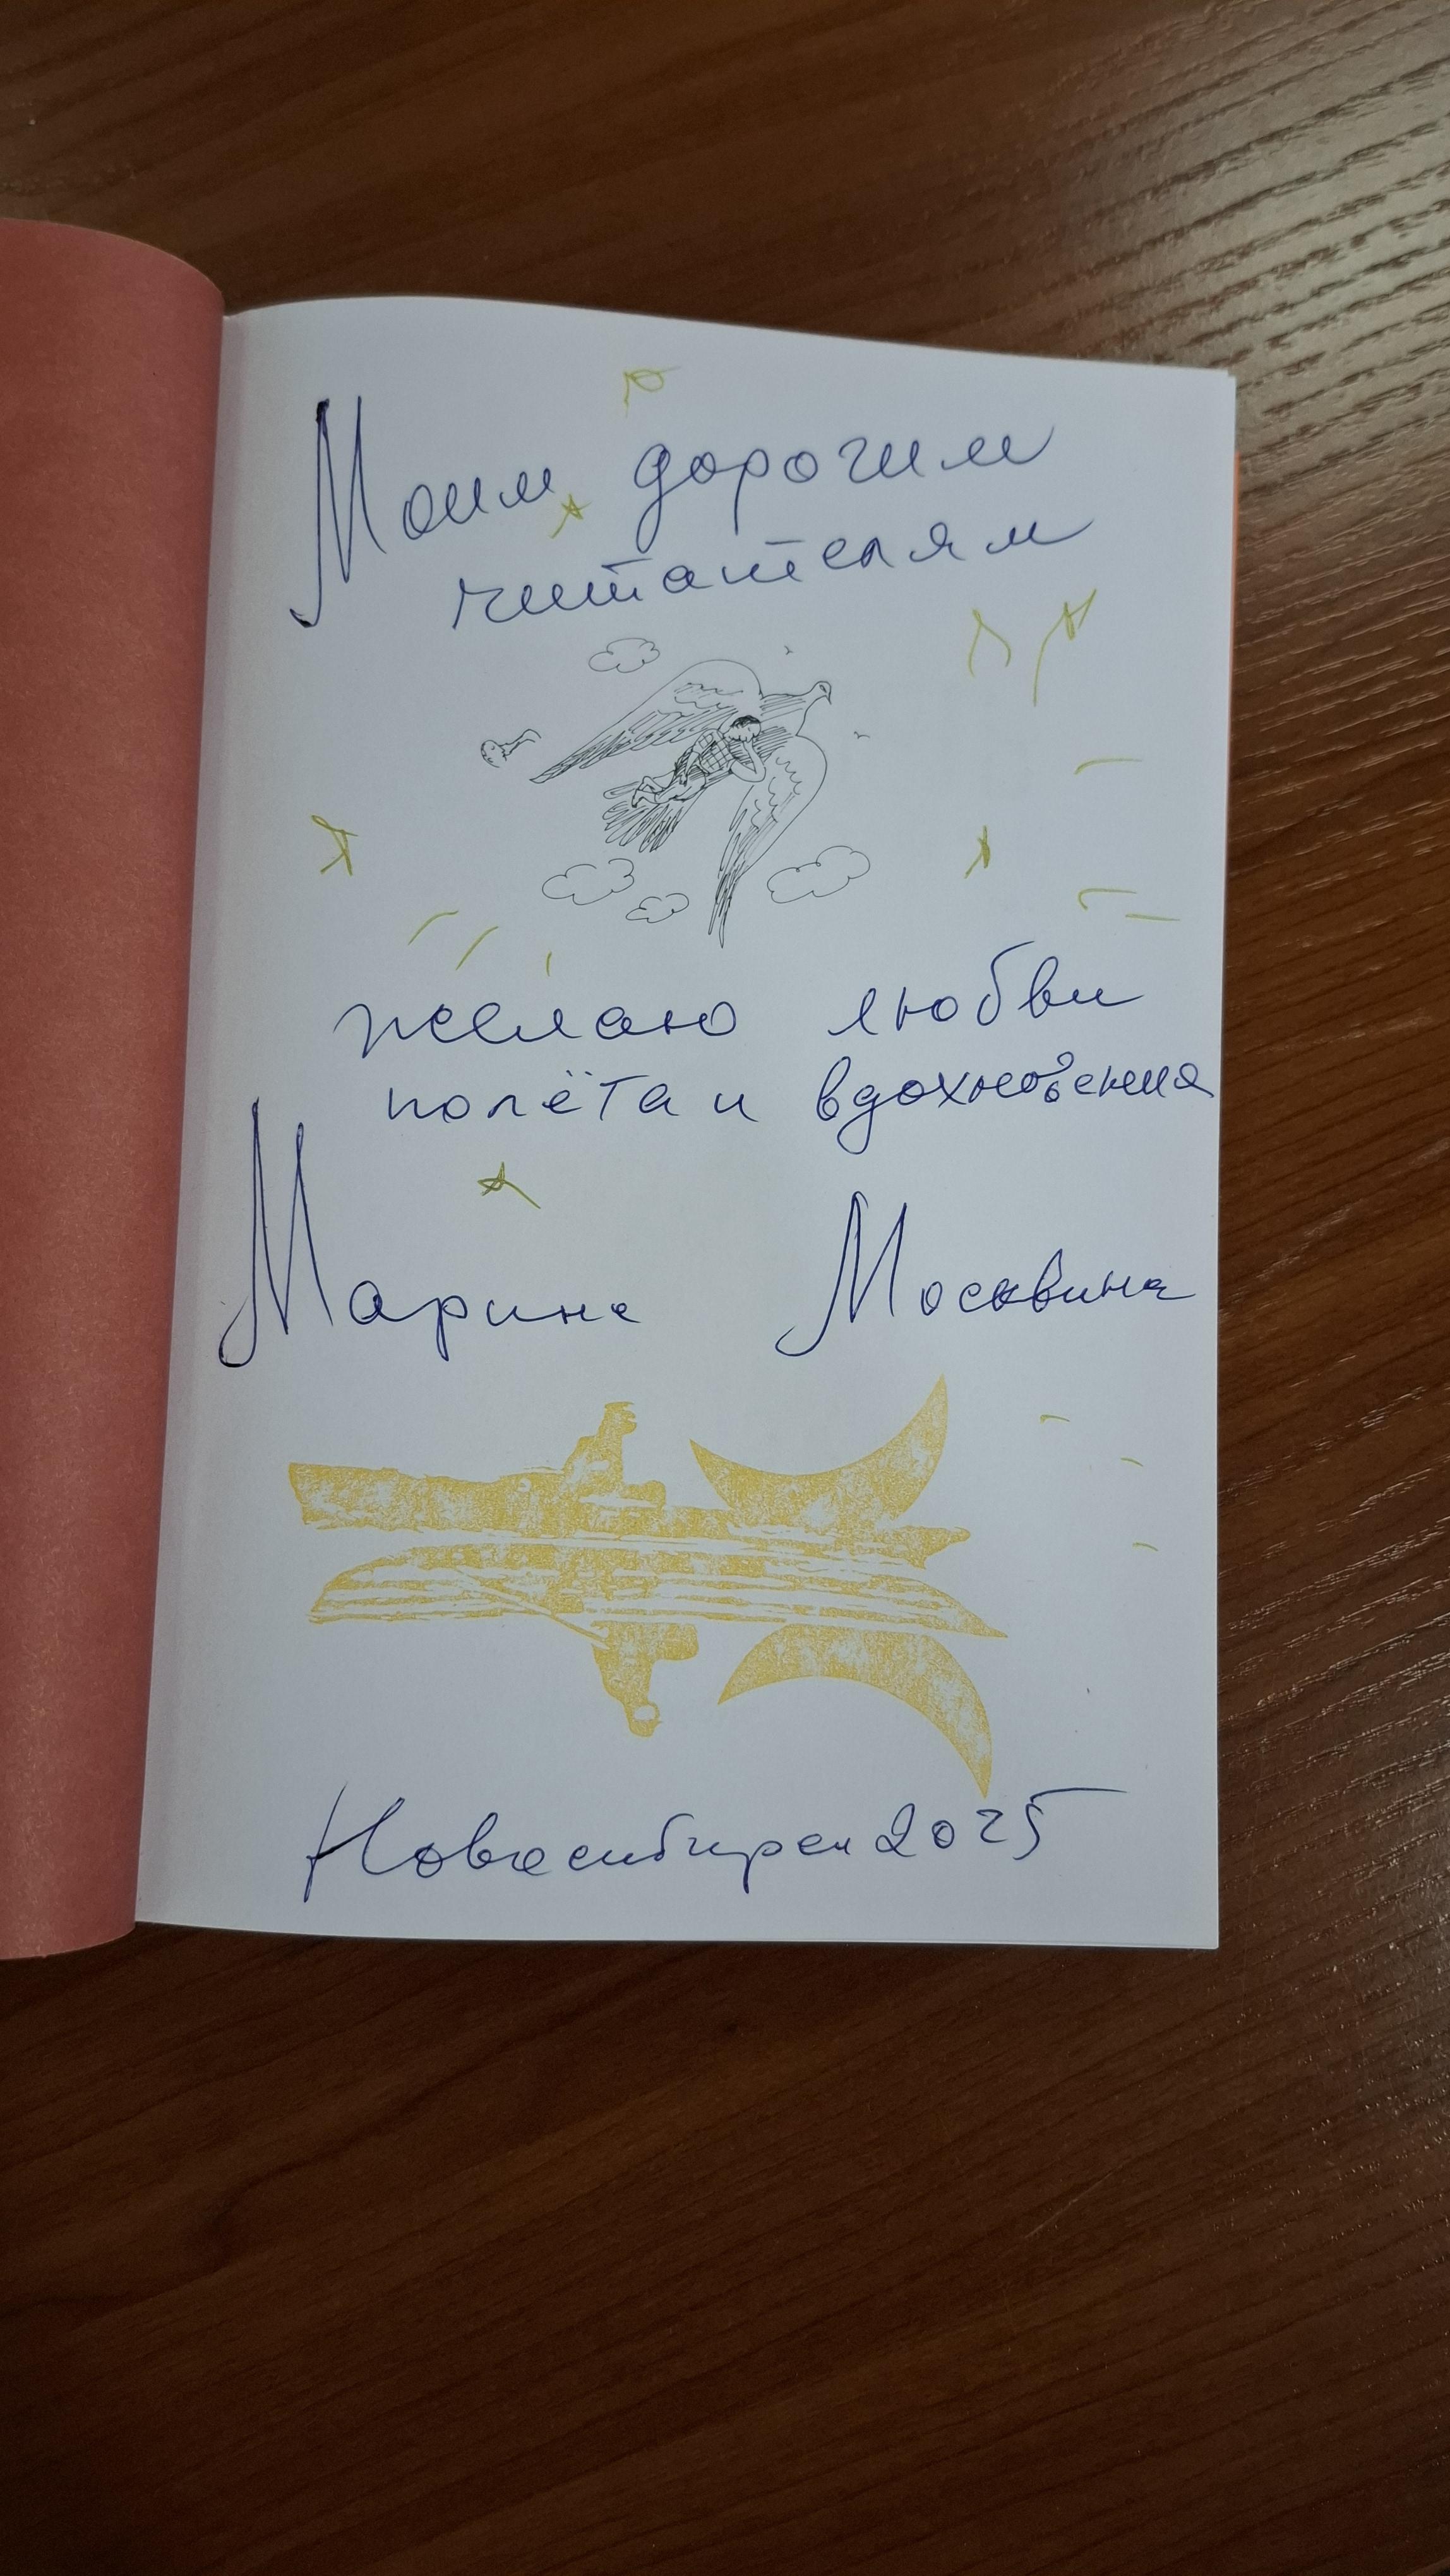 Моим дорогим
читателям
желаю любви
полёта и вдохновения
Марина Москвина
Новосибирск 2025